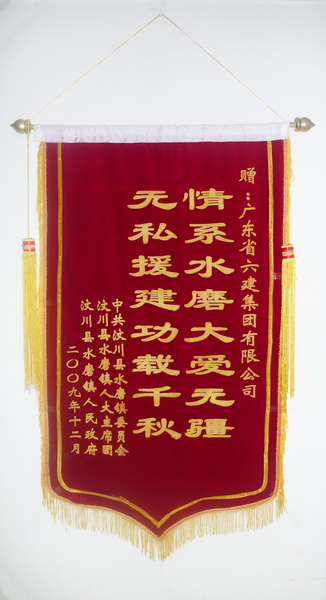 赠：广东省六建集团有限公司
情系水磨大爱无疆
无私援建功载千秋
中共汶川县水磨镇委员会
汶川县水磨镇人大主席团
汶川县水磨镇人民政府
二〇〇九年十二月